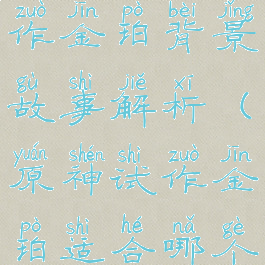 zuò jīn pò bèi jǐng
作金珀背景
gù shì jiě xī
故事解析（
yuán shén shì zuò jīn
原神试作金
pò shì hé nǎ gè
珀适合哪个